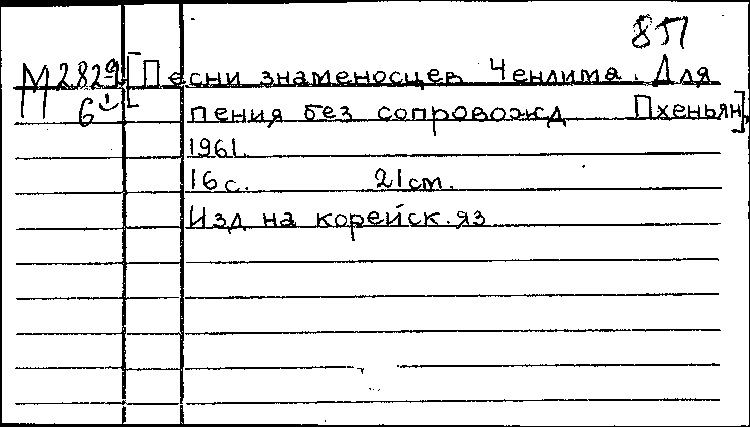 8П
М 2829 [Песни знаменосцев Ченлима. Для
6 пения без сопровожд Пхеньян],
1961.
16 с. 21 cm.
Изд на корейск. яз